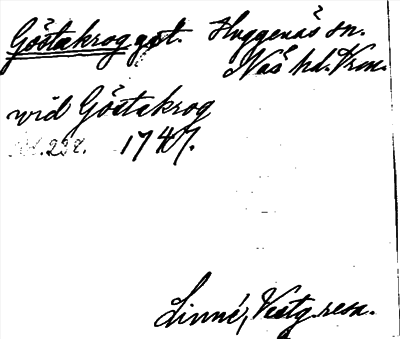 Göstakrog gst. Huggenäs sn.
Näs hd. Vrm.
wid Göstakrog
s. 232. 1747.
Linné, Vestg. resa.